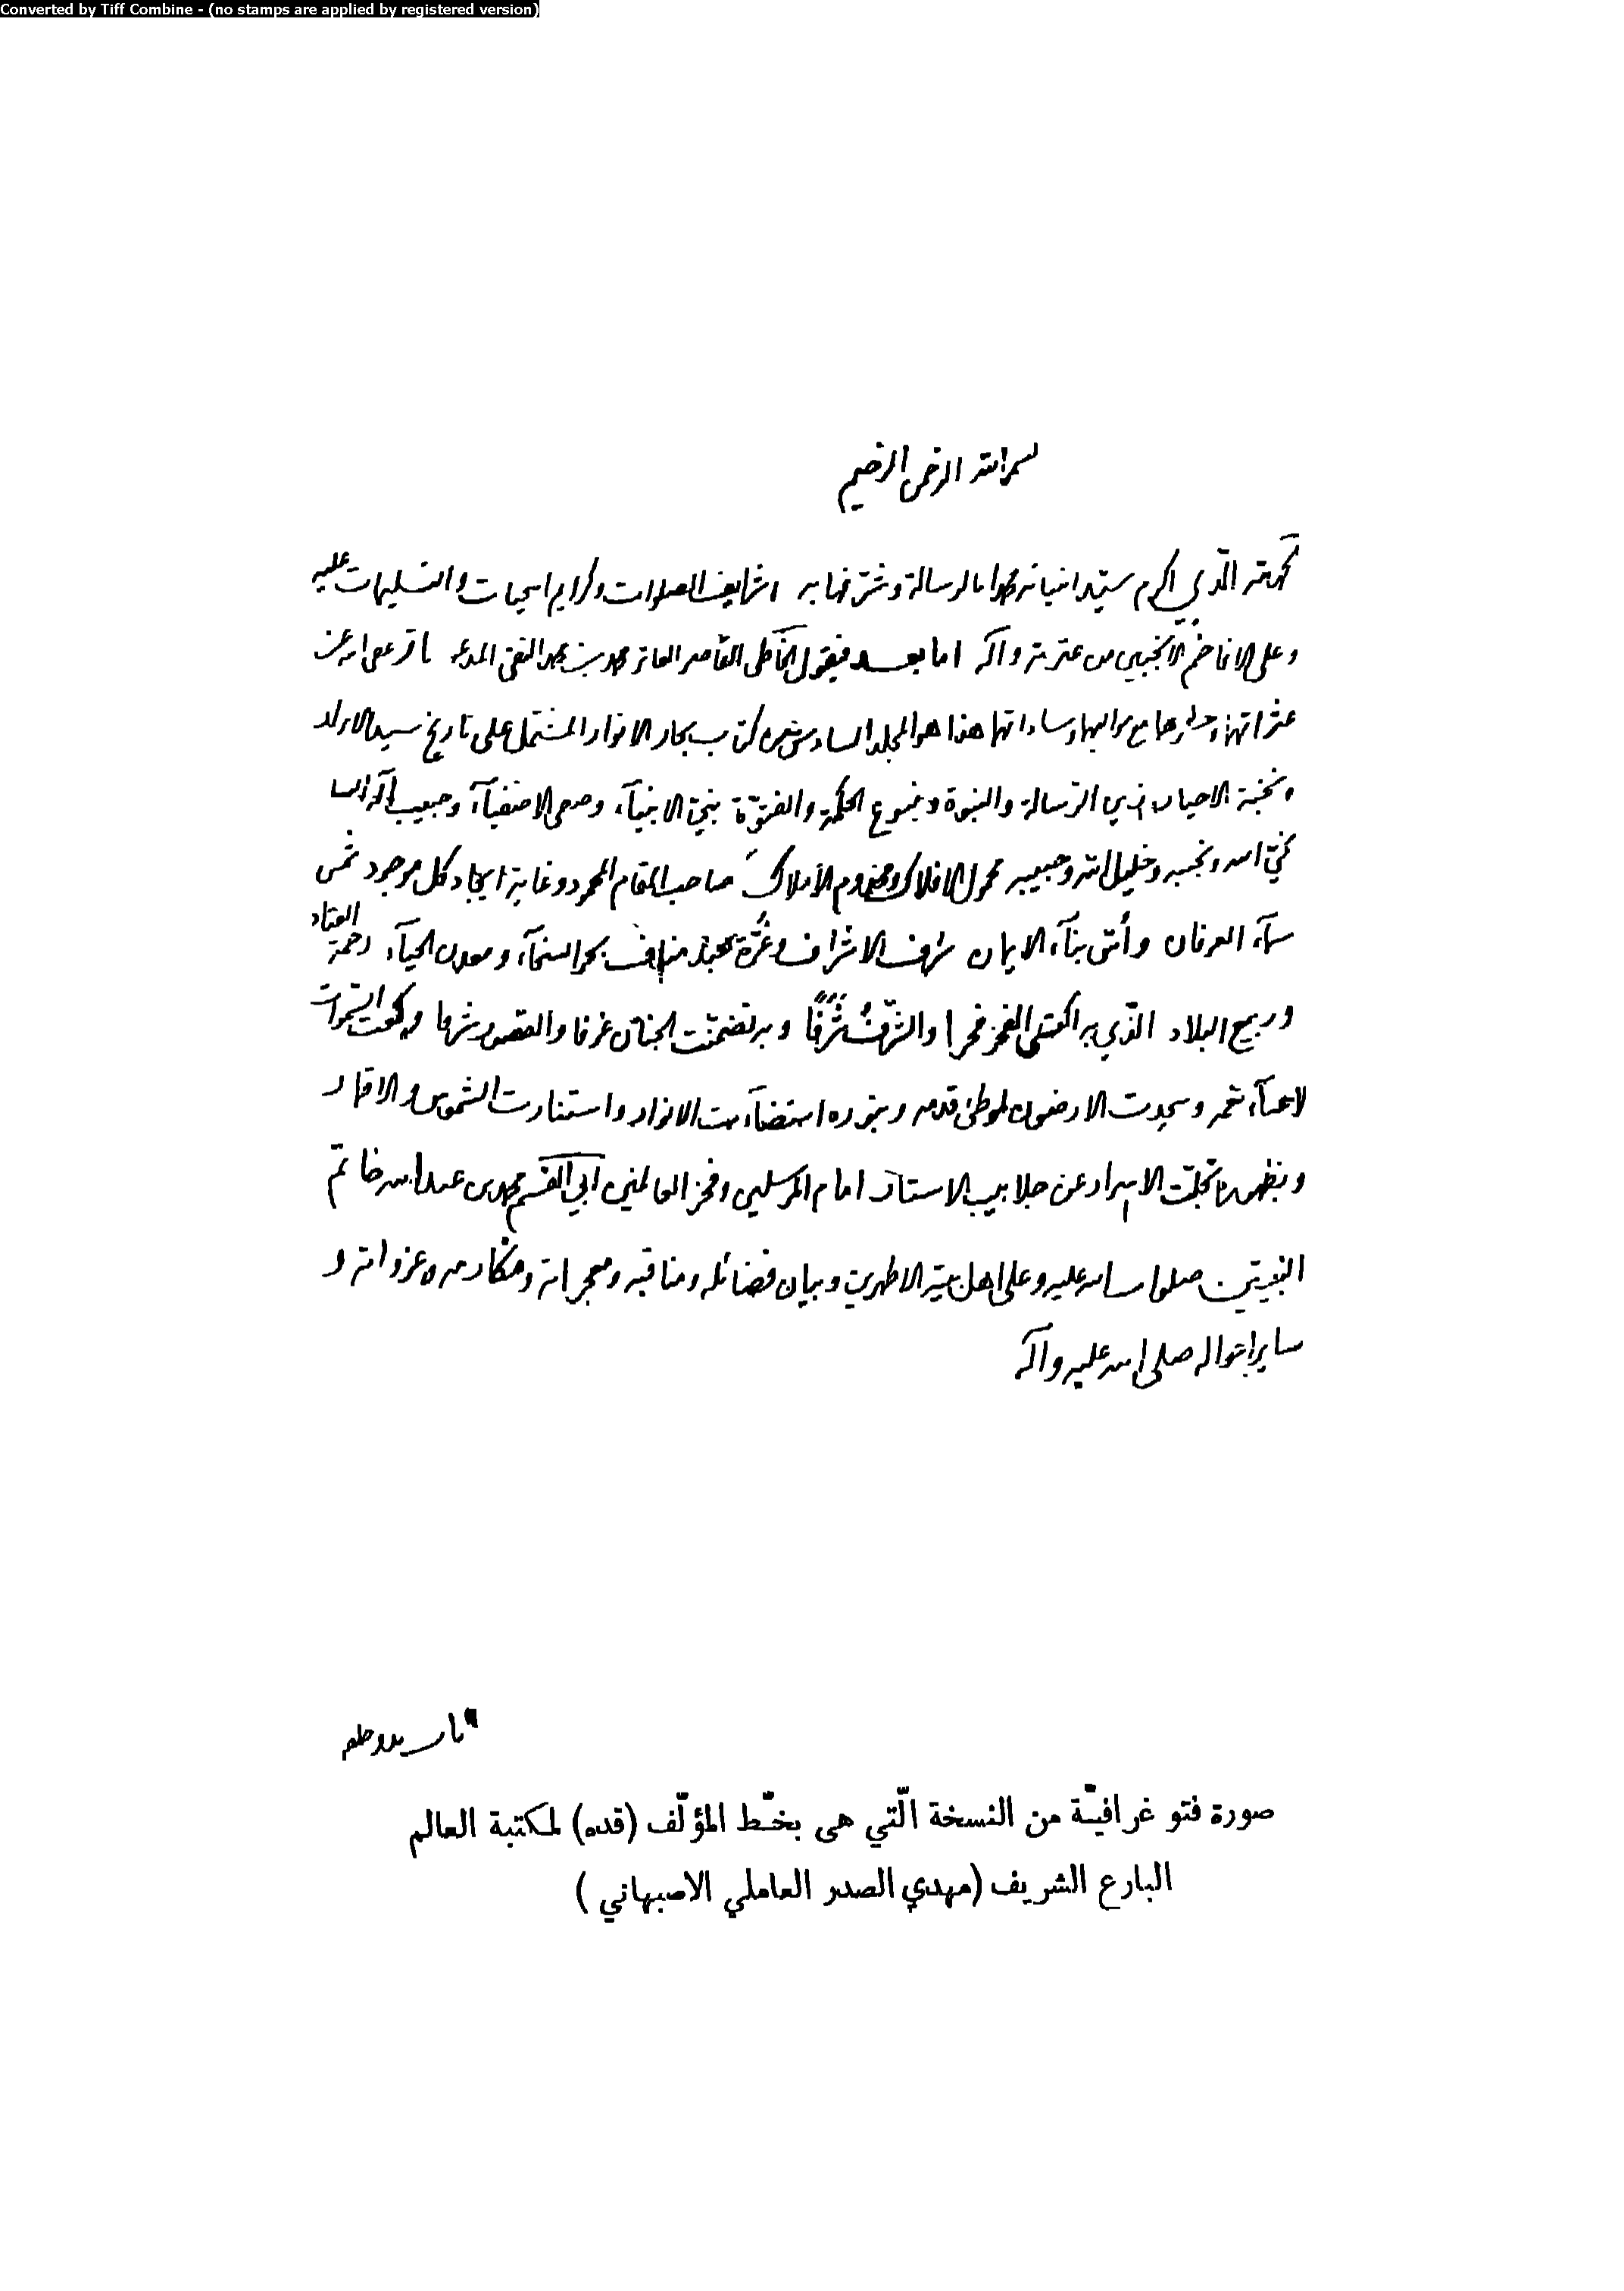 Converted by Tiff Combine - (no stamps are applied by registered version)
بسم الله الرحمن الرحيم
الحمد لله الذي اكرم سيد انبيائه محمدا بالرسالة وشرفها به اشرايف الصلوات وكرايم التحيات والتسليمات عليه
وعلى الافاخم الانجبين من عترته وآله اما بعد فيقول الخاطى القاصر العاثر محمد بن محمد التقى المدعو باقر عفى الله عن
عثراتهما وحشرهما مع مواليهما وساداتهما هذا هو المجلد السادس من كتاب بحار الانوار المشتمل على تاريخ سيد الابرار
ونخبة الاخيار زين الرسالة والنبوة وينبوع الحكمة والفتوة نبي الانبيآء وصفى الاصفيآء وحبيب اله السما
نجي الله ونجيبه وخليل الله وحبيبه محمول الافلاك ومخدوم الأملاك صاحب المقام المحمود وغاية ايجاد كل موجود شمس
سمآء العرفان وأس بنآء الايمان شرف الاشراف وغرة عبد مناف بحر السخآء ومعدن الحيآء رحمة العباد
وربيع البلاد الذي به اكتسى الفخر فخرا والشرف شرفا وبه تضمنت الجنان غرفا والقصور شرفا وركعت السموات
لاعبآء نعمه وسجدت الارضون لموطئ قدمه وبنوره استضآءت الانوار واستنارت الشموس والاقمار
وبظهوره تجلت الاسرار عن جلابيب الاستار امام المرسلين وفخر العالمين ابي القسم محمد بن عبد الله خاتم
النبيين صلوات الله عليه وعلى اهل بيته الاطهرين وبيان فضائله ومناقبه ومعجزاته ومكارمه وغزواته و
ساير احواله صلى الله عليه وآله
صورة فتو غرافيّة من النسخة الّتي هى بخّط المؤلّف (قده) لمكتبة العالم
البارع الشريف (مهدي الصدر العاملي الاصبهاني )